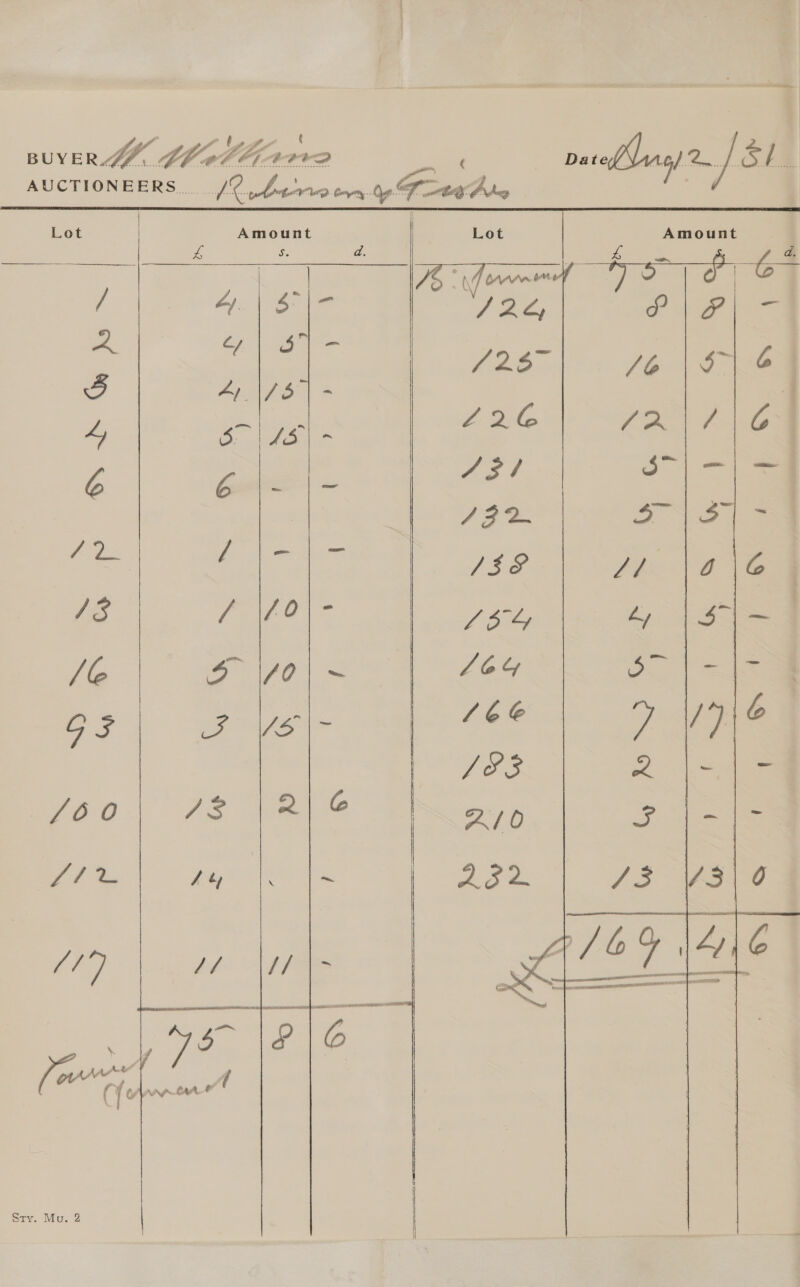 BUYER W. Williams Date Aug 2/31
AUCTIONEERS Robinson & Foster
Lot Amount Lot Amount
£ s. d. £ s. d.
B. Forward 75 8 6
1 4. 5 -
2 4 5 -
3 4. 15 -
4 5 15 -
6 6 - -
12 1 - -
13 1 10 -
16 5 10 -
93 3 15 -
100 13 2 6
112 14 . -
117 11 11 -
75 8 6
Carried
Forward
124 8 8 -
125 16 5 6
126 12 1 6
131 5 - -
132 5 5 -
138 11 0 6
154 4 5 -
164 5 - -
166 7 17 6
183 2 - -
210 3 - -
232 13 13 0
£169 4 6
Sty. Mu. 2